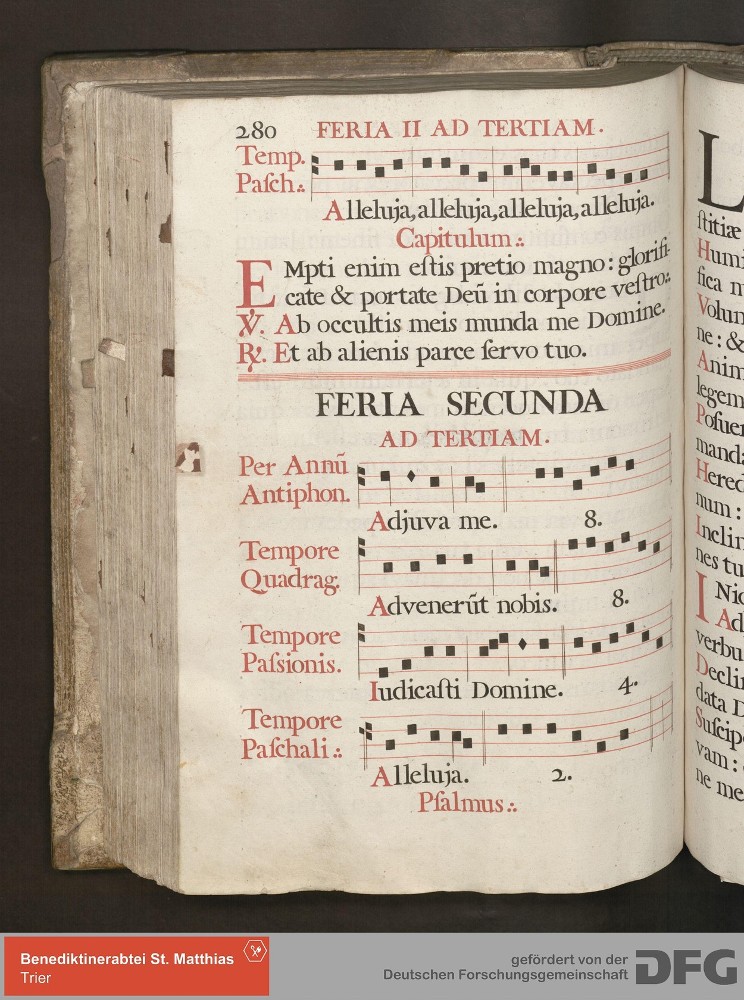 280 FERIA II AD TERTIAM.
Temp.
Paſch.:
Alleluja, alleluja, alleluja, alleluja.
Capitulum.:
EMpti enim eſtis pretio magno: glorifi-
cate & portate Deū in corpore veſtro.:
℣. Ab occultis meis munda me Domine.
℟. Et ab alienis parce ſervo tuo.
FERIA SECUNDA
AD TERTIAM.
Per Annū
Antiphon.
Adjuva me. 8.
Tempore
Quadrag.
Advenerūt nobis. 8.
Tempore
Paſsionis.
Iudicaſti Domine. 4.
Tempore
Paſchali.:
Alleluja. 2.
Pſalmus.:
L
ſtitiæ
Humi
fica m
Volun
ne: &
Anim
legem
Poſuer
manda
Hered
num:
Inclin
nes tu
INiq
Ad
verbu
Declin
data D
Suſcip
vam:
ne me
Benediktinerabtei St. Matthias
Trier
gefördert von der
Deutschen Forschungsgemeinschaft
DFG